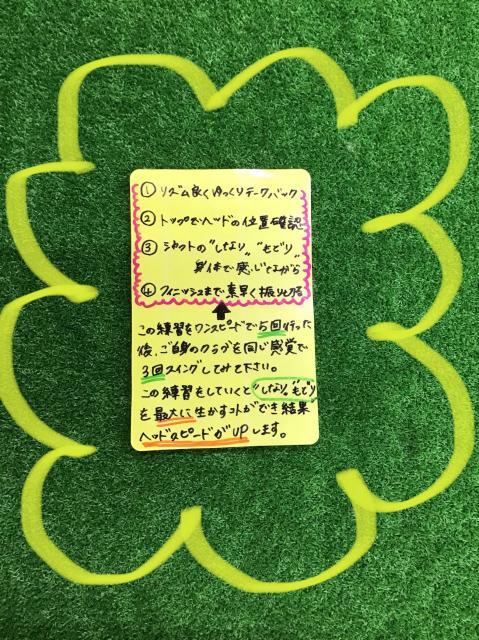 ① リズム良くゆっくりテークバック
② トップでヘッドの位置確認
③ シャフトの"しなり""もどり"
身体で感じながら
④ フィニッシュまで素早く振り切る
この練習をワンスピードで5回行った
後、ご自身のクラブを同じ感覚で
3回スイングしてみて下さい。
この練習をしていくと"しなり""もどり"
を最大に生かすコトができ結果
ヘッドスピードがUPします。